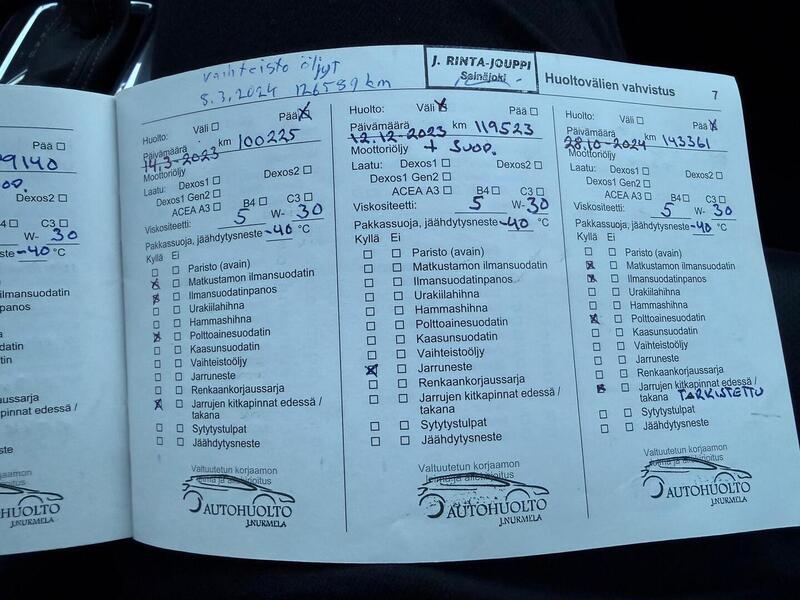 vaihteisto öljyt
8.3.2024 126589 km
J. RINTA-JOUPPI
Seinäjoki
Huoltovälien vahvistus
7
Pää
9140
Dexos2
B4 C3
W-30
-40 °C
ilmansuodatin
panos
suodatin
odatin
öljy
rjaussarja
kapinnat edessä /
AUTOHUOLTO
J.NURMELA
Huolto: Väli Pää X
Päivämäärä km 100225
14.3-2023
Moottoriöljy
Laatu: Dexos1 Dexos2
Dexos1 Gen2
ACEA A3 B4 C3
Viskositeetti: 5 W-30
Pakkassuoja, jäähdytysneste -40 °C
Kyllä Ei
Paristo (avain)
X Matkustamon ilmansuodatin
X Ilmansuodatinpanos
Urakiilahihna
Hammashihna
X Polttoainesuodatin
Kaasunsuodatin
Vaihteistoöljy
Jarruneste
Renkaankorjaussarja
X Jarrujen kitkapinnat edessä /
takana
Sytytystulpat
Jäähdytysneste
Valtuutetun korjaamon
leima ja allekirjoitus
AUTOHUOLTO
J.NURMELA
Huolto: Väli X Pää
Päivämäärä km 119523
12.12-2023
Moottoriöljy + SUOD.
Laatu: Dexos1 Dexos2
Dexos1 Gen2
ACEA A3 B4 C3
Viskositeetti: 5 W-30
Pakkassuoja, jäähdytysneste -40 °C
Kyllä Ei
Paristo (avain)
Matkustamon ilmansuodatin
Ilmansuodatinpanos
Urakiilahihna
Hammashihna
Polttoainesuodatin
Kaasunsuodatin
Vaihteistoöljy
X Jarruneste
Renkaankorjaussarja
Jarrujen kitkapinnat edessä /
takana
Sytytystulpat
Jäähdytysneste
Valtuutetun korjaamon
AUTOHUOLTO
J.NURMELA
Huolto: Väli Pää X
Päivämäärä km 143361
28.10-2024
Moottoriöljy
Laatu: Dexos1 Dexos2
Dexos1 Gen2
ACEA A3 B4 C3
Viskositeetti: 5 W-30
Pakkassuoja, jäähdytysneste -40 °C
Kyllä Ei
Paristo (avain)
X Matkustamon ilmansuodatin
X Ilmansuodatinpanos
Urakiilahihna
Hammashihna
X Polttoainesuodatin
Kaasunsuodatin
Vaihteistoöljy
Jarruneste
Renkaankorjaussarja
X Jarrujen kitkapinnat edessä /
takana TARKISTETTU
Sytytystulpat
Jäähdytysneste
Valtuutetun korjaamon
AUTOHUOLTO
J.NURMELA